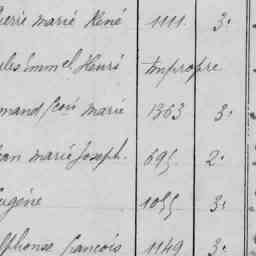 ierre marié Réné 1111. 3.
ules Emm el Henri Impropre
mand Feois marié 1363 3.
ean marié Joseph. 695. 2.
ugéne 1055 3.
lphonse François 1149 3.